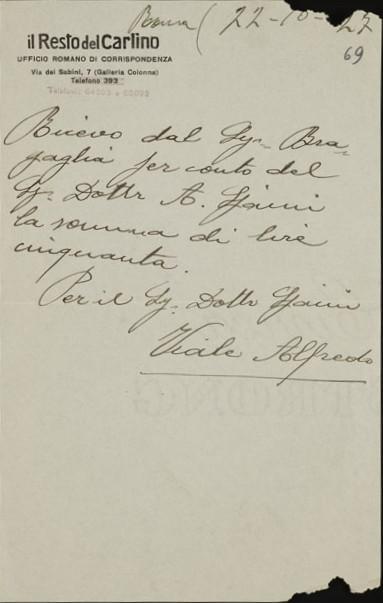 Roma ( 22-10-27
69
il Resto del Carlino
UFFICIO ROMANO DI CORRISPONDENZA
Via dei Sabini, 7 (Galleria Colonna)
Telefono 393
Ricevo dal Sg. Bra-
gaglia per conto del
Sg. Dottr A.
la somma di lire
cinquanta.
Per il Sg. Dottr
Viale Alfredo